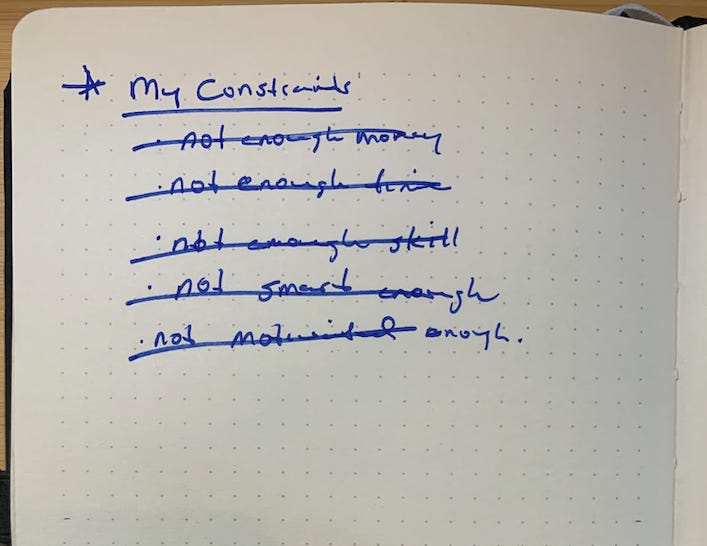 My Constraints
· not enough money
· not enough time
· not enough skill
· not smart enough
· not motivated enough.